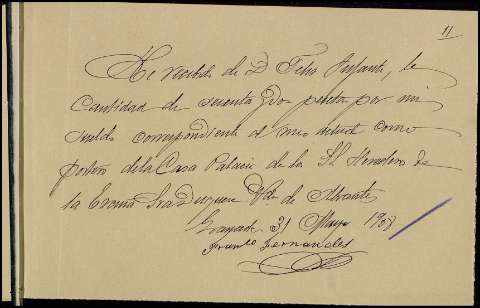 11
He recibido de D Felix Infante, la
Cantidad de sesenta y dos pesetas por mi
sueldo correspondiente al mes actual como
portero de la Casa Palacio de los Sres Herederos de
la Excma Sra Duquesa Vda de Abrantes
Granada 31 Mayo 1908
Fernandez